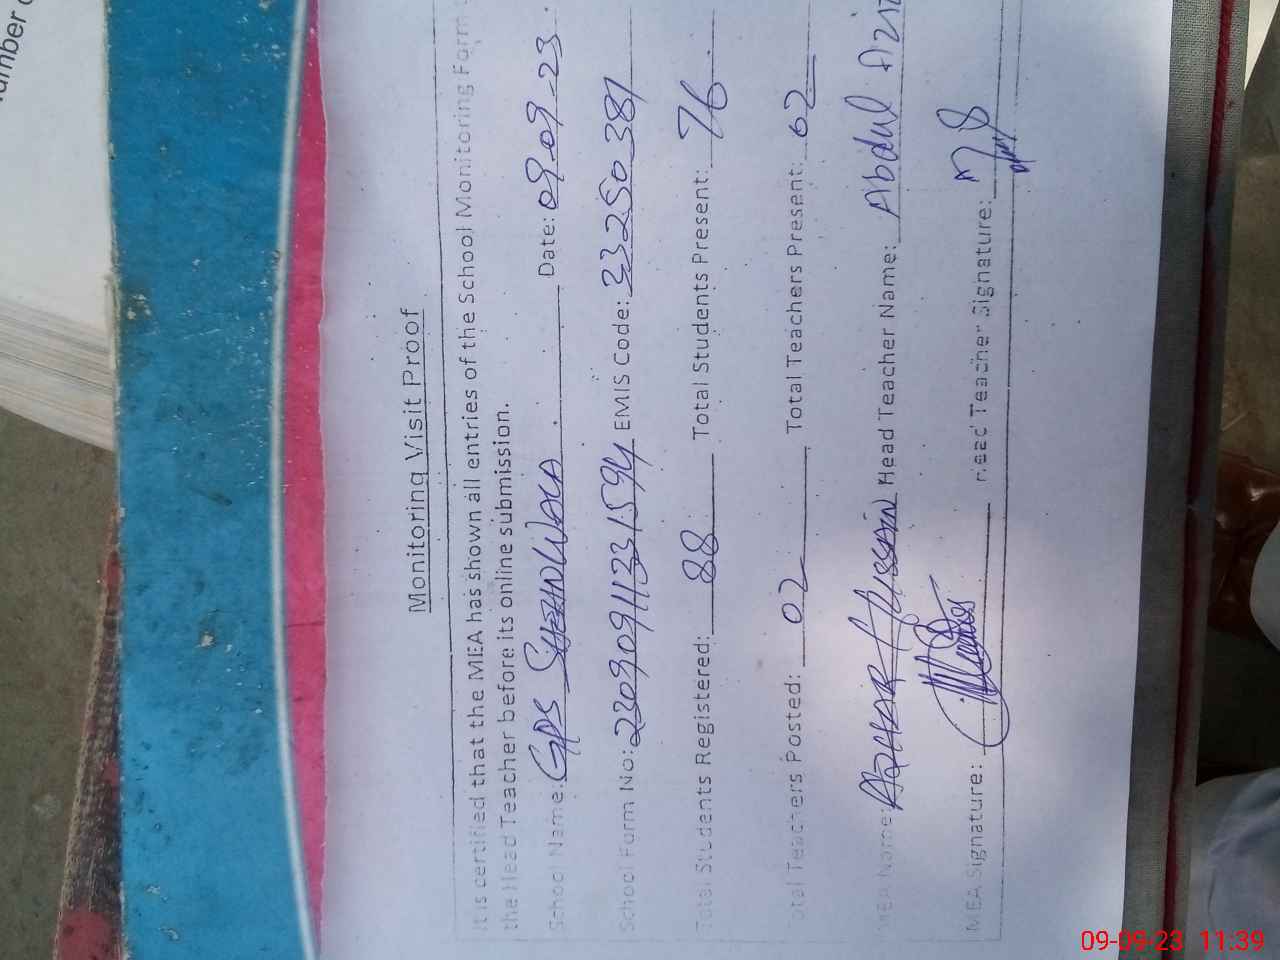 Monitoring Visit Proof
It is certified that the MEA has shown all entries of the School Monitoring Form
the Head Teacher before its online submission.
School Name: GPS Date: 09-09-23
School Form No: EMIS Code: 33250381
Total Students Registered: 88 Total Students Present: 76
Total Teachers Posted: 02 Total Teachers Present: 02
MEA Name: Hussain Head Teacher Name: Abdul Aziz
MEA Signature: Head Teacher Signature:
09-09-23 11:39